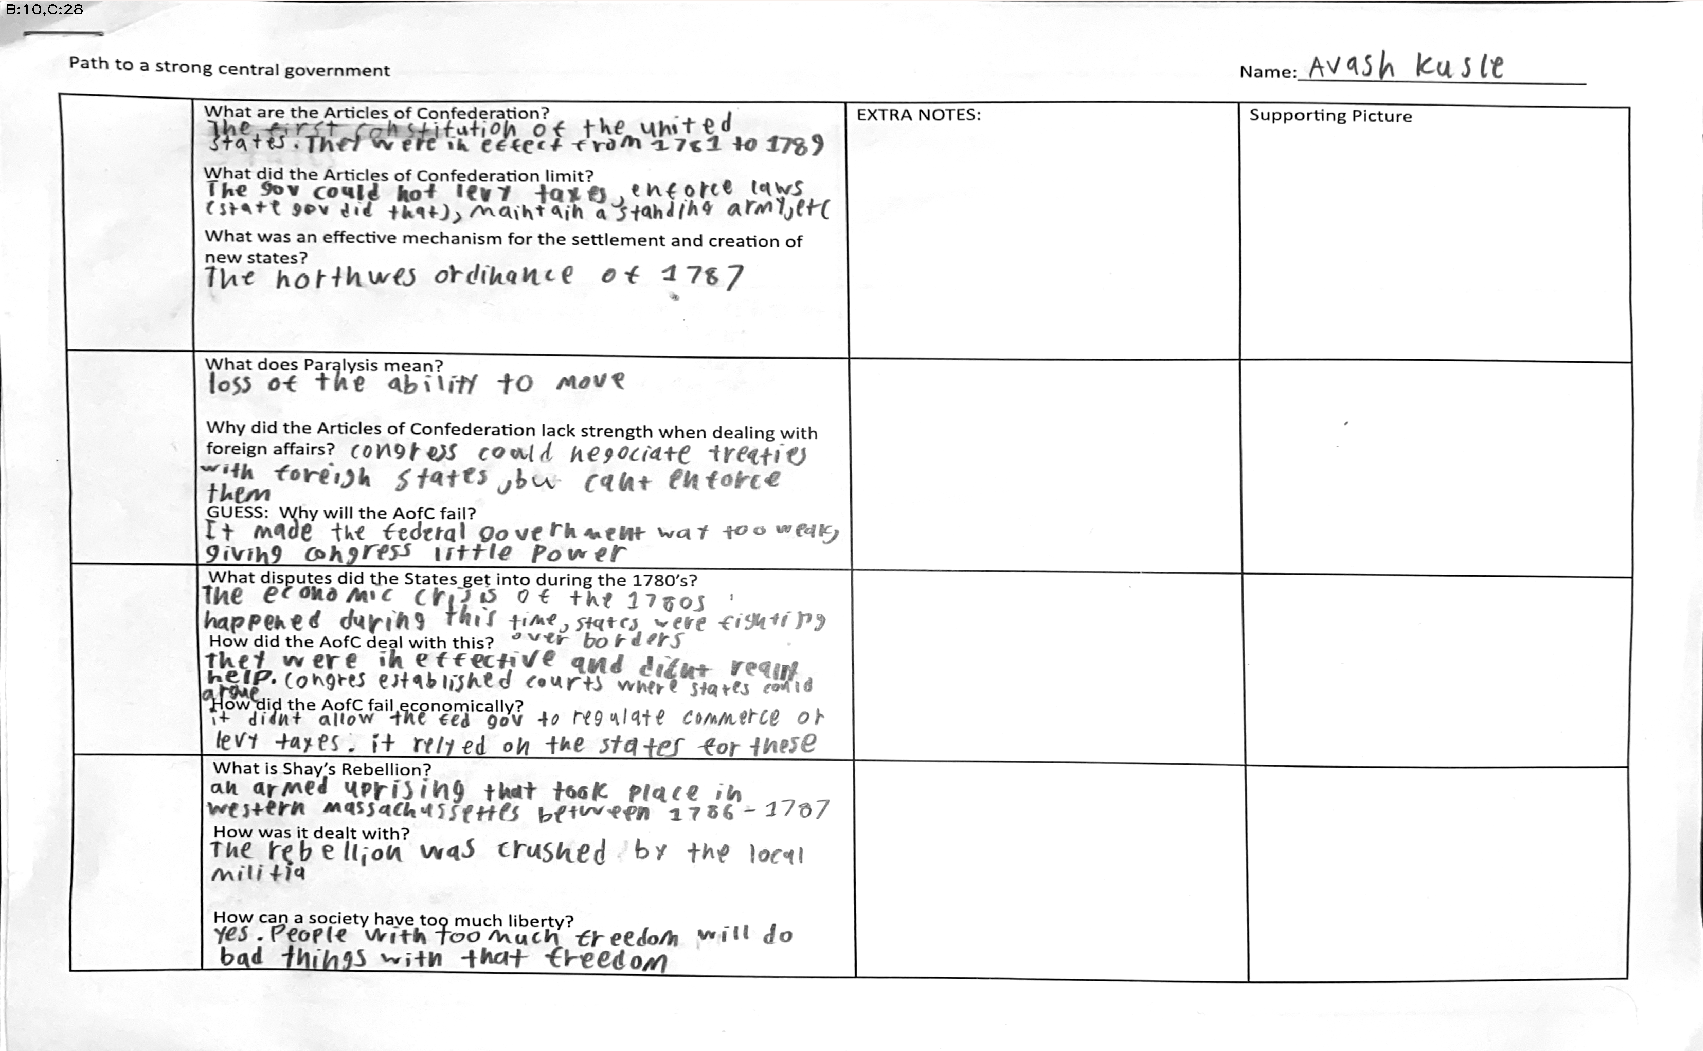 B:10,C:28
Path to a strong central government
Name: Avash Kusle
What are the Articles of Confederation?
The first constitution of the united
states. They were in effect from 1781 to 1789
What did the Articles of Confederation limit?
The gov could not levy taxes, enforce laws
(state gov did that), maintain a standing army, etc
What was an effective mechanism for the settlement and creation of
new states?
The northwes ordinance of 1787
EXTRA NOTES:
Supporting Picture
What does Paralysis mean?
loss of the ability to move
Why did the Articles of Confederation lack strength when dealing with
foreign affairs? congress could negociate treaties
with foreign states, bu cant enforce
them
GUESS: Why will the AofC fail?
It made the federal government wat too weak,
giving congress little power
What disputes did the States get into during the 1780's?
The economic crisis of the 1780s
happened during this time, states were fighting
over borders
How did the AofC deal with this?
they were ineffective and didnt really
help. Congres established courts where states could
argue
How did the AofC fail economically?
it didnt allow the fed gov to regulate commerce or
levy taxes. it relyed on the states for these
What is Shay's Rebellion?
an armed uprising that took place in
western massachussettes between 1786-1787
How was it dealt with?
The rebellion was crushed by the local
militia
How can a society have too much liberty?
yes. People with too much freedom will do
bad things with that freedom